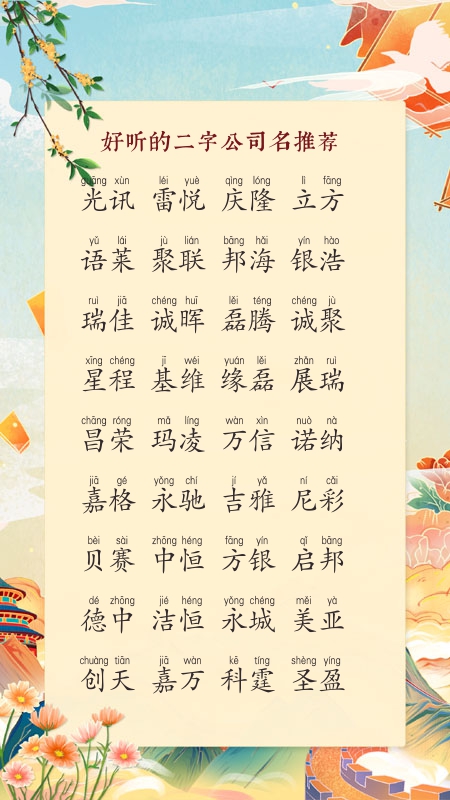 好听的二字公司名推荐
guāng xùn léi yuè qìng lóng lì fāng
光讯 雷悦 庆隆 立方
yǔ lái jù lián bāng hǎi yín hào
语莱 聚联 邦海 银浩
ruì jiā chéng huī lěi téng chéng jù
瑞佳 诚晖 磊腾 诚聚
xīng chéng jī wéi yuán lěi zhǎn ruì
星程 基维 缘磊 展瑞
chāng róng mǎ líng wàn xìn nuò nà
昌荣 玛凌 万信 诺纳
jiā gé yǒng chí jí yǎ ní cǎi
嘉格 永驰 吉雅 尼彩
bèi sài zhōng héng fāng yín qǐ bāng
贝赛 中恒 方银 启邦
dé zhōng jié héng yǒng chéng měi yà
德中 洁恒 永城 美亚
chuàng tiān jiā wàn kē tíng shèng yíng
创天 嘉万 科霆 圣盈